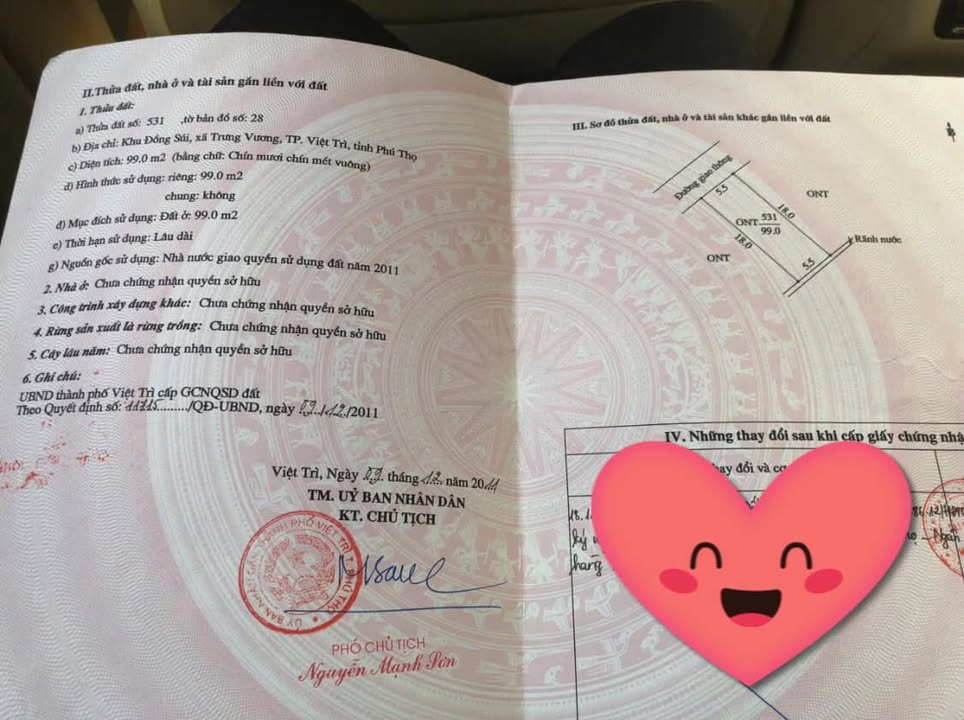 II. Thửa đất, nhà ở và tài sản gắn liền với đất
1. Thửa đất:
a) Thửa đất số: 531 ,tờ bản đồ số: 28
b) Địa chỉ: Khu Đồng Súi, xã Trưng Vương, TP. Việt Trì, tỉnh Phú Thọ
c) Diện tích: 99.0 m2 (bằng chữ: Chín mươi chín mét vuông)
d) Hình thức sử dụng: riêng: 99.0 m2
chung: không
đ) Mục đích sử dụng: Đất ở: 99.0 m2
e) Thời hạn sử dụng: Lâu dài
g) Nguồn gốc sử dụng: Nhà nước giao quyền sử dụng đất năm 2011
2. Nhà ở: Chưa chứng nhận quyền sở hữu
3. Công trình xây dựng khác: Chưa chứng nhận quyền sở hữu
4. Rừng sản xuất là rừng trồng: Chưa chứng nhận quyền sở hữu
5. Cây lâu năm: Chưa chứng nhận quyền sở hữu
6. Ghi chú:
UBND thành phố Việt Trì cấp GCNQSD đất
Theo Quyết định số: 11715........./QĐ-UBND, ngày /12/2011
Việt Trì, Ngày tháng .12. năm 2011
TM. UỶ BAN NHÂN DÂN
KT. CHỦ TỊCH
ỦY BAN NHÂN DÂN THÀNH PHỐ VIỆT TRÌ T. PHÚ THỌ
PHÓ CHỦ TỊCH
Nguyễn Mạnh Sơn
III. Sơ đồ thửa đất, nhà ở và tài sản khác gắn liền với đất
Đường giao thông
5.5
18.0
ONT
ONT 531
99.0
18.0
ONT
Rãnh nước
5.5
IV. Những thay đổi sau khi cấp giấy chứng nhậ
ay đổi và cơ
ký
hàng
Ngân